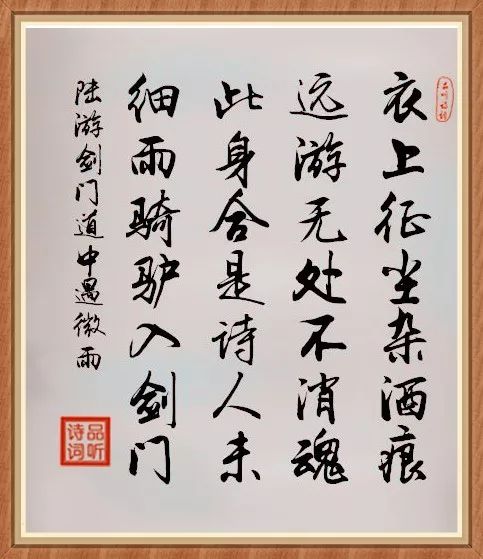 衣上征尘杂酒痕
远游无处不消魂
此身合是诗人未
细雨骑驴入剑门
陆游剑门道中遇微雨
品听
诗词